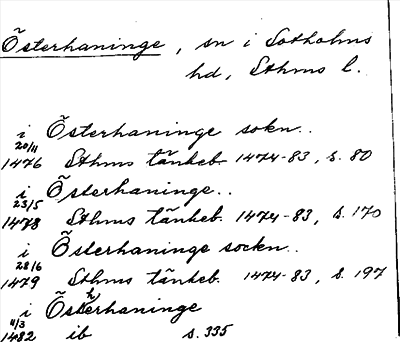 Österhaninge, sn i Sotholms
hd, Sthms l.
i Österhaninge sokn..
20/11
1476 Sthms tänkeb. 1474-83, s. 80
i Österhaninge..
23/5
1478 Sthms tänkeb. 1474-83, s. 170
i Österhaninge socken..
28/6
1479 Sthms tänkeb. 1474-83, s. 197
i Östherhaninge
11/3
1482 ib s. 335